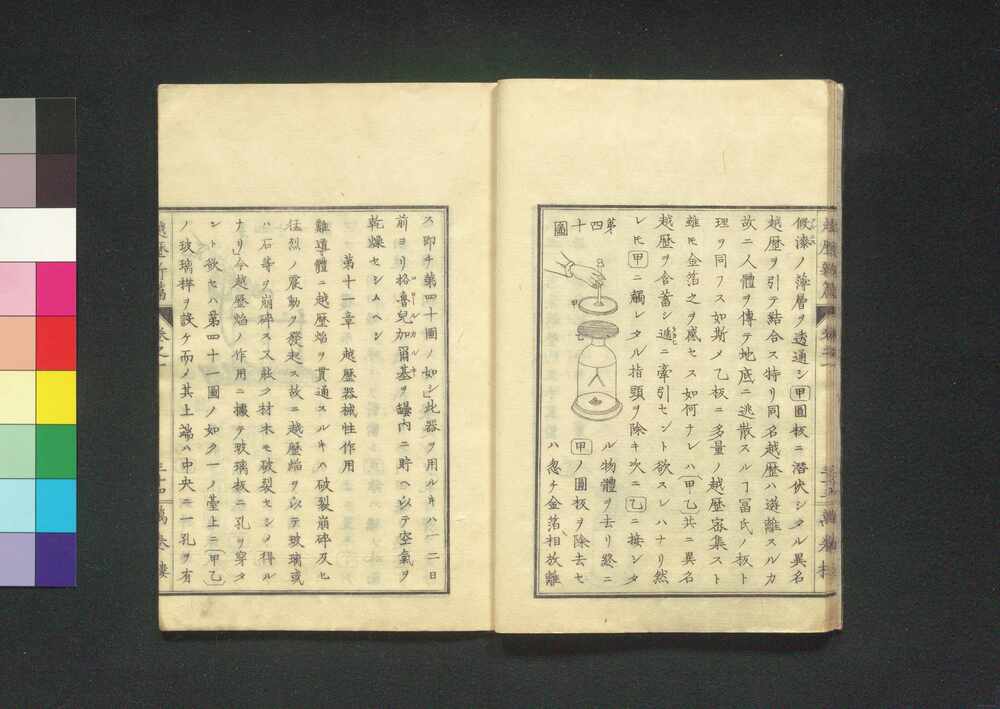 假漆ノ薄層ヲ透通シ甲圓板ニ潜伏シタル異名
越歴ヲ引テ結合ス特リ同名越歴ハ遊離スルカ
故ニ人體ヲ傳テ地底ニ逃散スルヿ冨氏ノ板ト
理ヲ同フス如斯メ乙板ニ多量ノ越歴審集スト
雖𪜈金箔之ヲ感セス如何ナレハ甲乙共ニ異名
越歴ヲ含蓄シ遞ニ牽引セント欲スレハナリ然
レ𪜈甲ニ觸レタル指頭ヲ除キ次ニ乙ニ接シタ
ル物體ヲ去リ終ニ
甲ノ圓板ヲ除去セ
ハ忽チ金箔相放離
第四十圖
甲
乙
ス即チ第四十圖ノ如シ此器ヲ用ルキハ一二日
前ヨリ格魯兒加爾基ヲ罎内ニ時ヘ以テ空氣ヲ
乾燥セシムヘシ
第十一章 越歴器械性作用
難導體ニ越歴焰ヲ貫通スルキハ破裂崩碎及ヒ
猛烈ノ震動ヲ發起ス故ニ越歴焰ヲ以テ玻璃或
ハ石等ヲ崩碎ス又能ク材木モ破裂セシメ得ル
ナリ今越歴焰ノ作用ニ據テ玻璃板ニ孔ヲ穿タ
ント欲セハ第四十一圖ノ如ク一ノ臺上ニ甲乙
ノ玻璃柱ヲ設ケ而ノ其上端ハ中央ニ一孔ヲ有